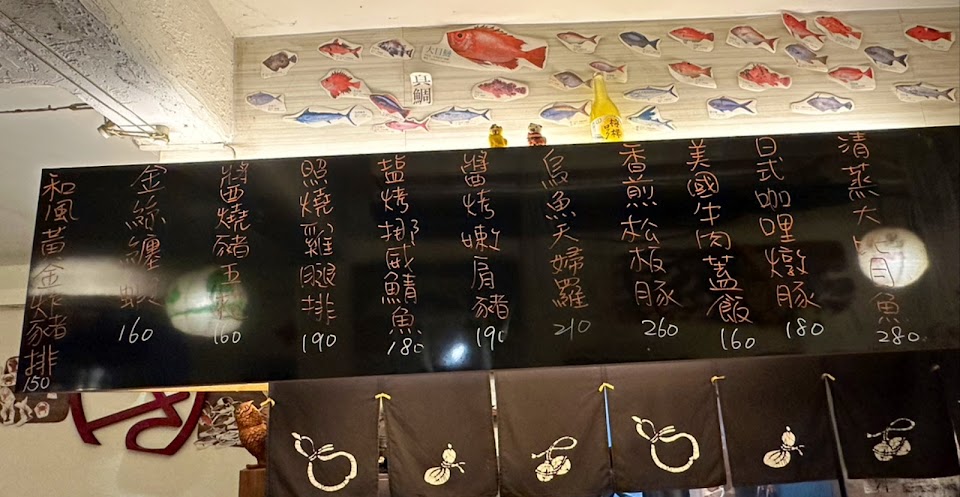 真鯛
清蒸大魚
280
日式咖哩燉豚
180
美國牛肉蓋飯
160
香煎松板豚
260
烏魚天婦羅
210
醬烤嫩肩豬
190
鹽烤挪威鯖魚
180
照燒雞腿排
190
醬燒豬五
160
金絲纏蝦
160
和風黃金炸豬排
150